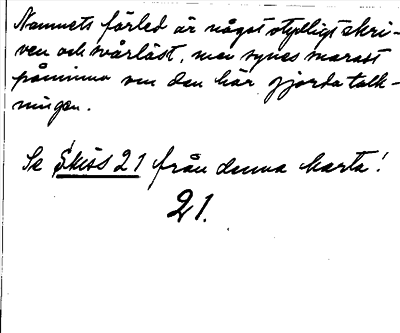 Namnets förled är något otydligt skri-
ven och svårläst, men synes snarast
påminna om den här gjorda tolk-
ningen.
Se Skiss 21 från denna karta!
21.